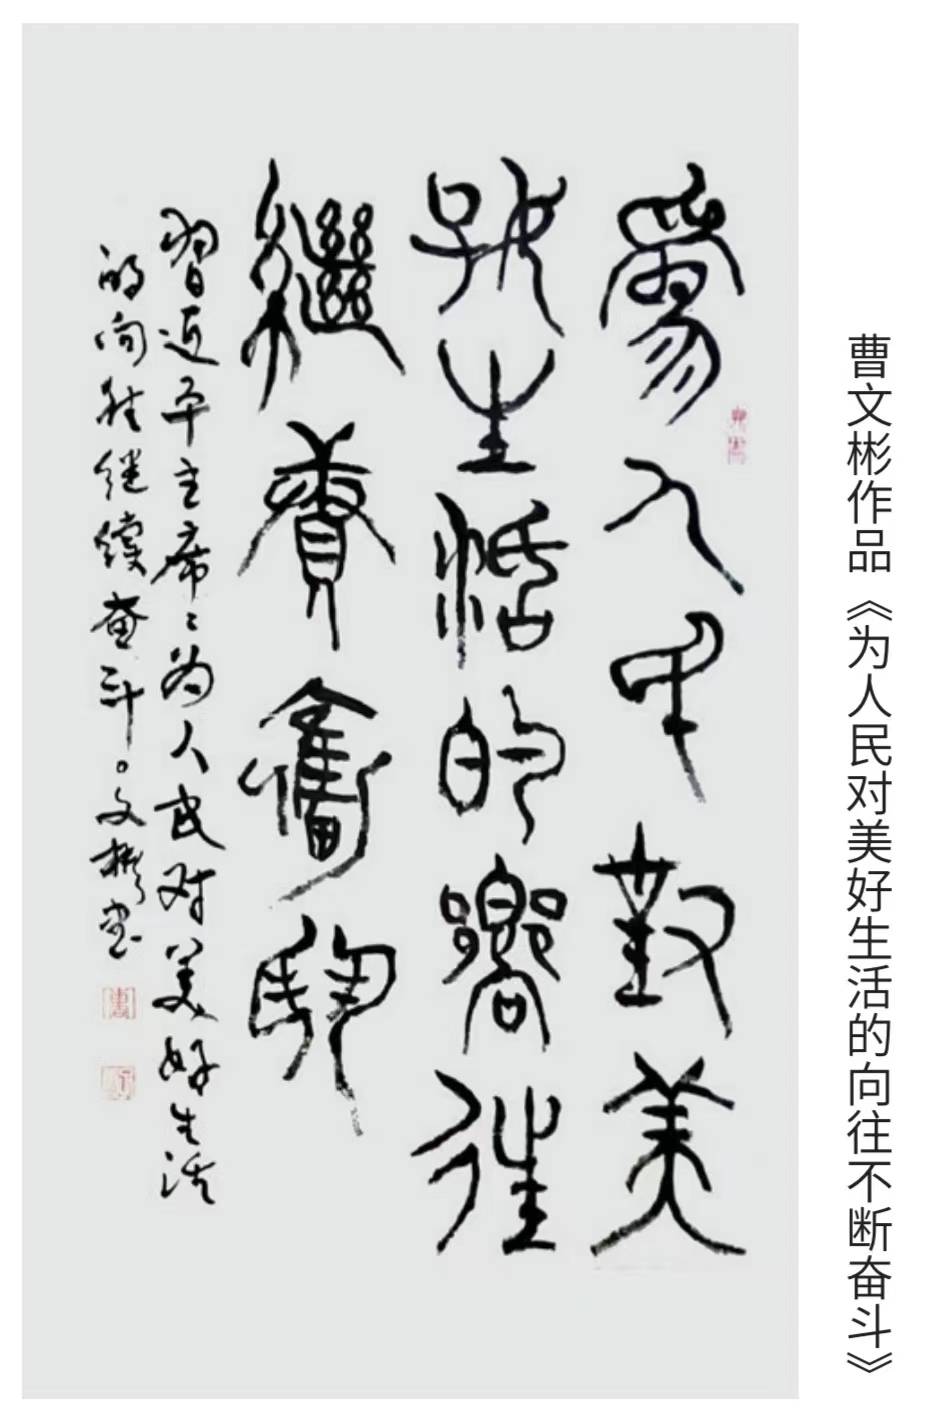 曹文彬作品《为人民对美好生活的向往不断奋斗》
為人民對美
好生活的嚮往
繼續奮鬥
習近平主席：为人民对美好生活
的向往继續奋斗。文彬书